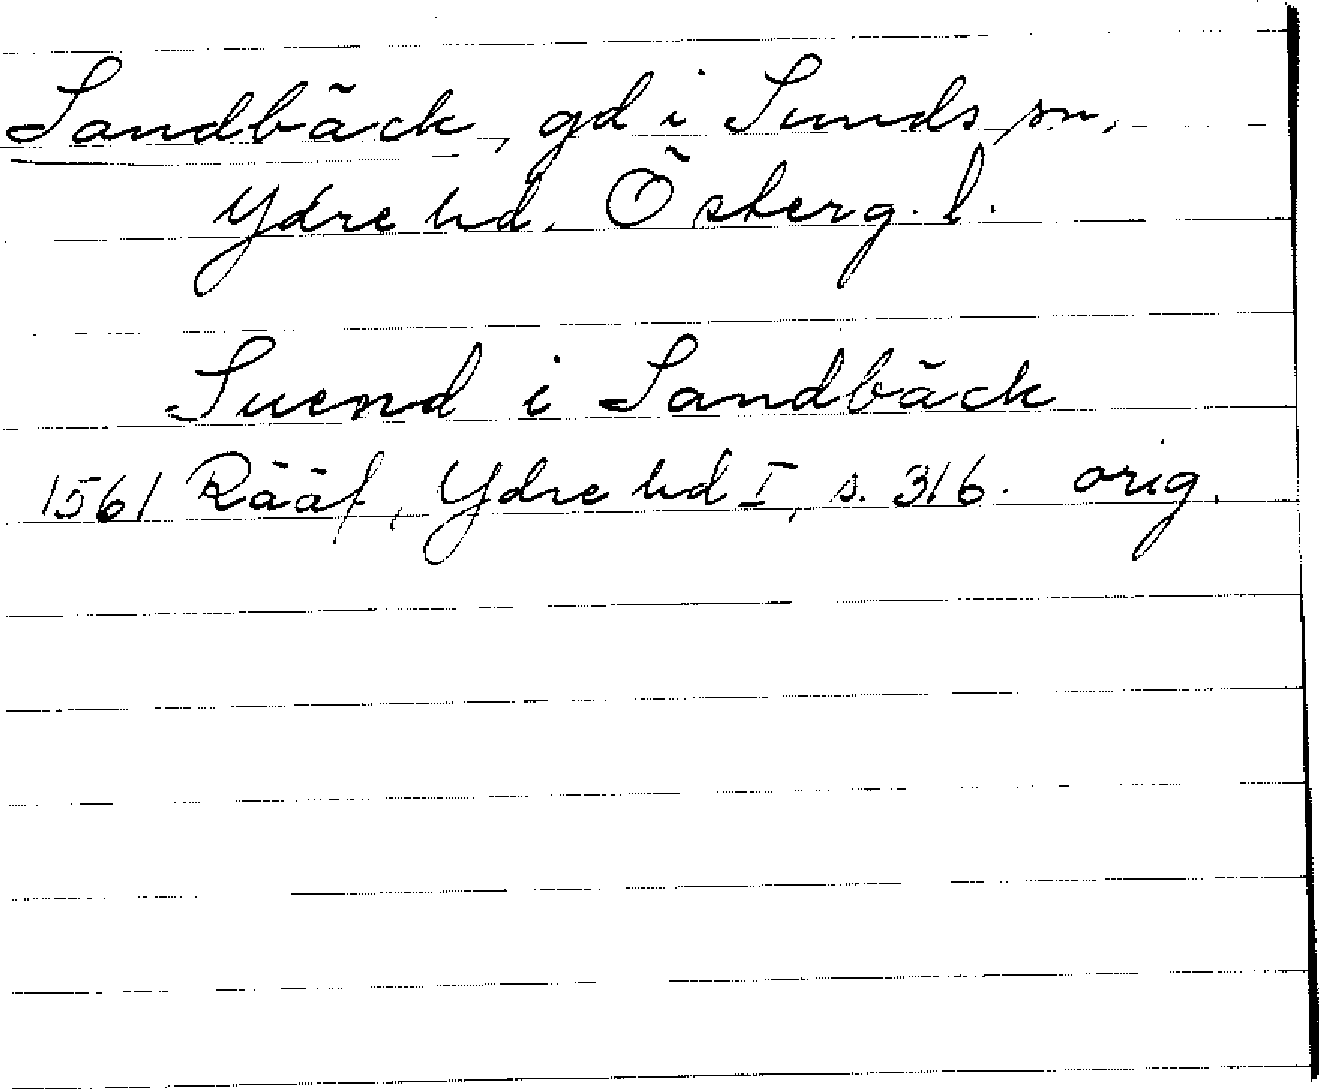 Sandbäck, gd i Sunds sn,
Ydre hd. Österg. l.
Suend i Sandbäck
1561 Rääf, Ydre hd I, s. 316. orig.